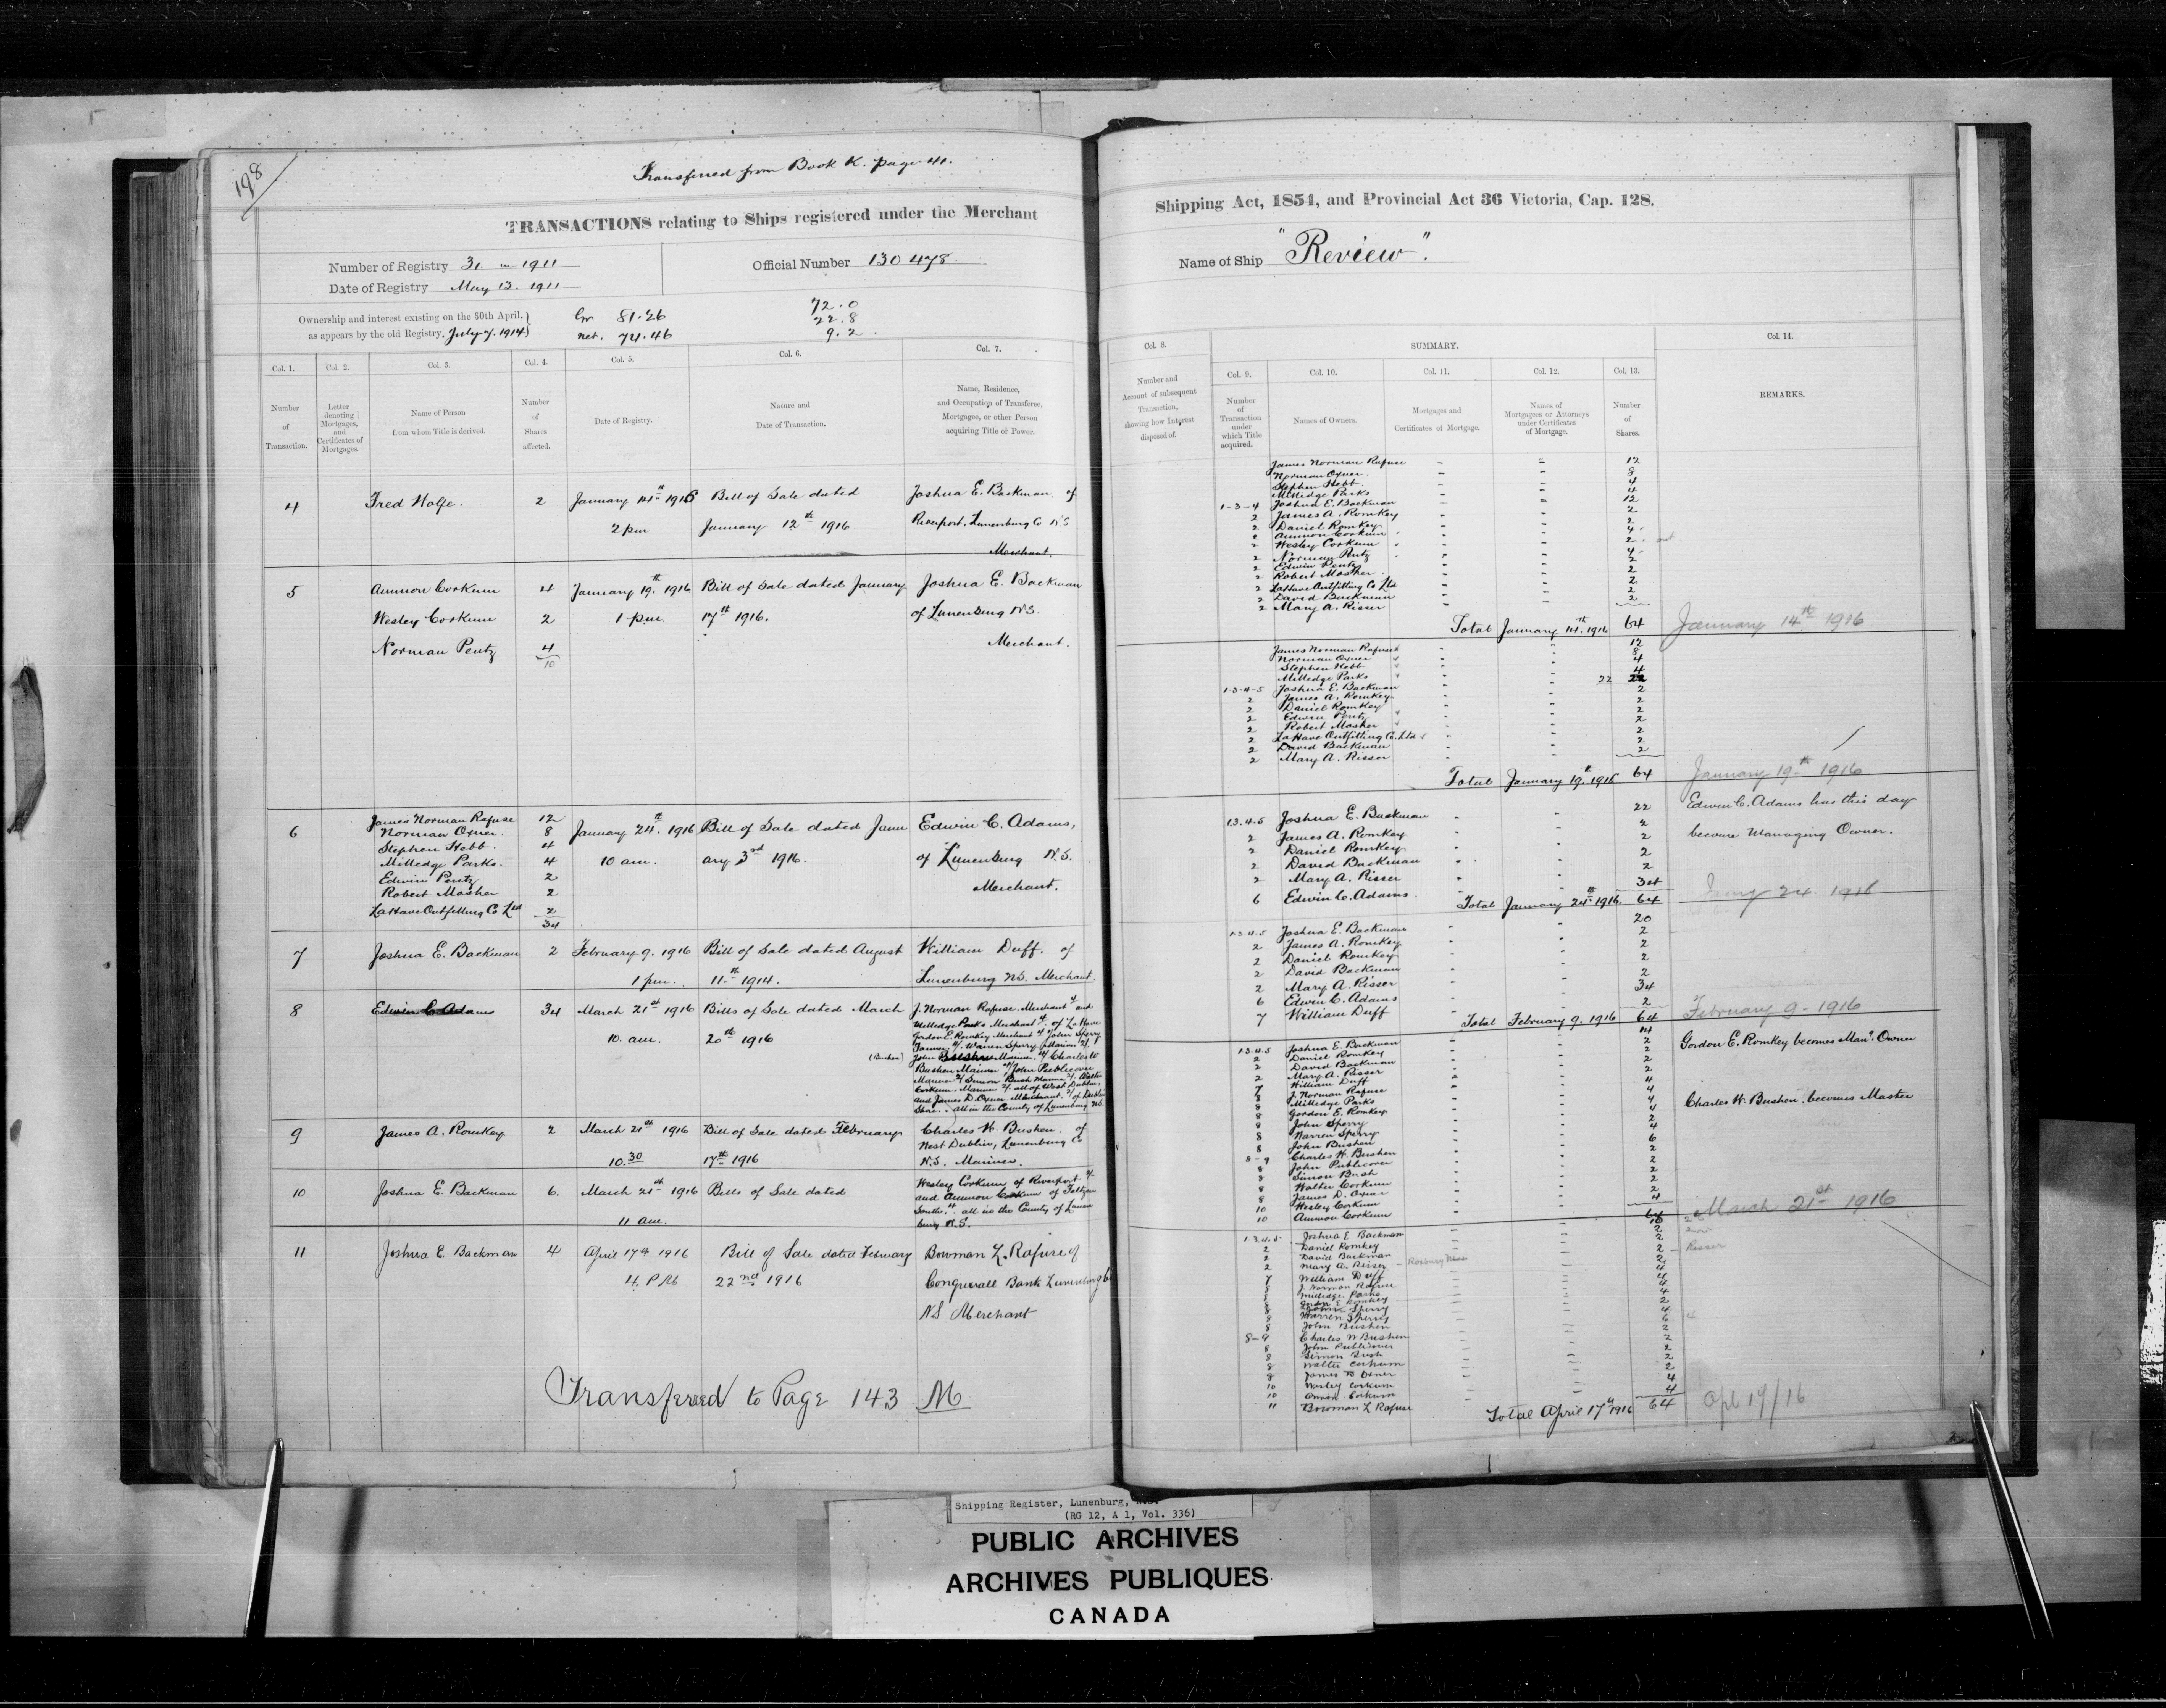 198
Transferred from Book K. page 41.
TRANSACTIONS relating to Ships registered under the Merchant
Shipping Act, 1854, and Provincial Act 36 Victoria, Cap. 128.
Number of Registry 31. in 1911
Date of Registry May 13. 1911
Official Number 130478
Name of Ship "Review".
Ownership and interest existing on the 30th April,
as appears by the old Registry. July 7. 1914
Gr. 81.26
net. 74.46
72.0
22.8
9.2
Col. 1.
Number
of
Transaction.
Col. 2.
Letter
denoting
Mortgages,
and
Certificates of
Mortgages.
Col. 3.
Name of Person
from whom Title is derived.
Col. 4.
Number
of
Shares
affected.
Col. 5.
Date of Registry.
Col. 6.
Nature and
Date of Transaction.
Col. 7.
Name, Residence,
and Occupation of Transferee,
Mortgagee, or other Person
acquiring Title or Power.
4 Fred Wolfe. 2 January 14th 1916 Bill of Sale dated Joshua E. Backman of
2 pm January 12th 1916 Riverport. Lunenburg Co N.S
Merchant.
5 Ammon Corkum 4 January 19th. 1916 Bill of Sale dated January Joshua E. Backman
Wesley Corkum 2 1 p.m. 17th 1916. of Lunenburg N.S.
Norman Pentz 4 Merchant.
10
6 James Norman Rafuse 12 January 24th. 1916 Bill of Sale dated Janu Edwin C. Adams,
Norman Oxner. 8
Stephen Hebb. 4
Milledge Parks. 4 10 am. ary 3rd 1916. of Lunenburg N.S.
Edwin Pentz 2 Merchant.
Robert Mosher 2
LaHave Outfitting Co Ltd 2
34
7 Joshua E. Backman 2 February 9. 1916 Bill of Sale dated August William Duff. of
1 pm. 11th 1914. Lunenburg N.S. Merchant.
8 Edwin C Adams 34 March 21st 1916 Bills of Sale dated March J. Norman Rafuse Merchant 4 and
10. am. 20th 1916 Milledge Parks Merchant 4. of LaHave
Gordon E. Romkey Merchant 4 John Sperry
Farmer 4. Warren Sperry Mariner 2.
(Bushen) John Bushen Mariner. 4 Charles W
Bushen Mariner 4 John Publicover
Mariner 2 Simon Bush Mariner 2. Walter
Corkum. Mariner 2. all of West Dublin.
and James D. Oxner. Merchant. 2 of Dublin
Shore. all in the County of Lunenburg N.S.
9 James A. Romkey 2 March 21st 1916 Bill of Sale dated February Charles W. Bushen. of
10.30 17th 1916 West Dublin, Lunenburg Co
N.S. Mariner.
10 Joshua E. Backman 6. March 21st 1916 Bills of Sale dated Wesley Corkum of Riverport. 2
11 am. and Ammon Corkum of Feltzen
South. 4. all in the County of Lunen
burg N.S.
11 Joshua E. Backman 4 April 17th 1916 Bill of Sale dated February Bowman L. Rafuse of
4. P.M. 22nd 1916 Conquerall Bank Lunenburg Co
N.S Merchant
Transferred to Page 143 M
Col. 8.
Number and
Amount of subsequent
Transaction,
showing how Interest
disposed of.
SUMMARY.
Col. 9.
Number
of
Transaction
under
which Title
acquired.
Col. 10.
Names of Owners.
Col. 11.
Mortgages and
Certificates of Mortgage.
Col. 12.
Names of
Mortgagees or Attorneys
under Certificates
of Mortgage.
Col. 13.
Number
of
Shares.
Col. 14.
REMARKS.
James Norman Rafuse 12
Norman Oxner. 8
Stephen Hebb. 4
Milledge Parks 4
1-3-4 Joshua E. Backman 12
2 James A. Romkey 2
2 Daniel Romkey 2
2 Ammon Corkum 4
2 Wesley Corkum 2
2 Norman Pentz 4
2 Edwin Pentz 2
2 Robert Mosher 2
2 LaHave Outfitting Co Ltd 2
2 David Backman 2
2 Mary A. Risser 2
Total January 14th. 1916 64 January 14th 1916
James Norman Rafuse 12
Norman Oxner 8
Stephen Hebb 4
Milledge Parks 4
1-3-4-5 Joshua E. Backman 22 22
2 James A. Romkey 2
2 Daniel Romkey 2
2 Edwin Pentz 2
2 Robert Mosher 2
2 LaHave Outfitting Co. Ltd 2
2 David Backman 2
2 Mary A. Risser 2
Total January 19th. 1916 64 January 19th 1916
1.3.4.5 Joshua E. Backman 22 Edwin C. Adams has this day
2 James A. Romkey 2 became Managing Owner.
2 Daniel Romkey 2
2 David Backman 2
2 Mary A. Risser 2
6 Edwin C. Adams. 34
Total January 24th 1916. 64 24. 1916
1.3.4.5 Joshua E. Backman 20
2 James A. Romkey 2
2 Daniel Romkey 2
2 David Backman 2
2 Mary A. Risser 2
6 Edwin C. Adams 34
7 William Duff 2
Total February 9. 1916 64 February 9-1916
1.3.4.5 Joshua E. Backman 14 Gordon E. Romkey becomes Man. Owner
2 Daniel Romkey 2
2 David Backman 2
2 Mary A. Risser 2
7 William Duff 2
8 J. Norman Rafuse 4
8 Milledge Parks 4
8 Gordon E. Romkey 4 Charles W. Bushen. becomes Master
8 John Sperry 4
8 Warren Sperry 2
8 John Bushen 4
8-9 Charles W. Bushen 6
8 John Publicover 2
8 Simon Bush 2
8 Walter Corkum 2
8 James D. Oxner 2
10 Wesley Corkum 2
10 Ammon Corkum 4
64 March 21st 1916
1.3.4.5 Joshua E Backman 10
2 Daniel Romkey 2
2 David Backman 2
2 Mary A. Risser 2 Risser
7 William Duff 2
8 J. Norman Rafuse 4
8 Milledge Parks 4
8 Gordon E Romkey 4
8 John Sperry 4
8 Warren Sperry 2
8 John Bushen 4
8-9 Charles W Bushen 6
8 John Publicover 2
8 Simon Bush 2
8 Walter Corkum 2
8 James D Oxner 2
10 Wesley Corkum 2
10 Ammon Corkum 4
11 Bowman L Rafuse 4
Total April 17th 1916 64 Apl 17/16
Shipping Register, Lunenburg, N.S.
(RG 12, A 1, Vol. 336)
PUBLIC ARCHIVES
ARCHIVES PUBLIQUES
CANADA